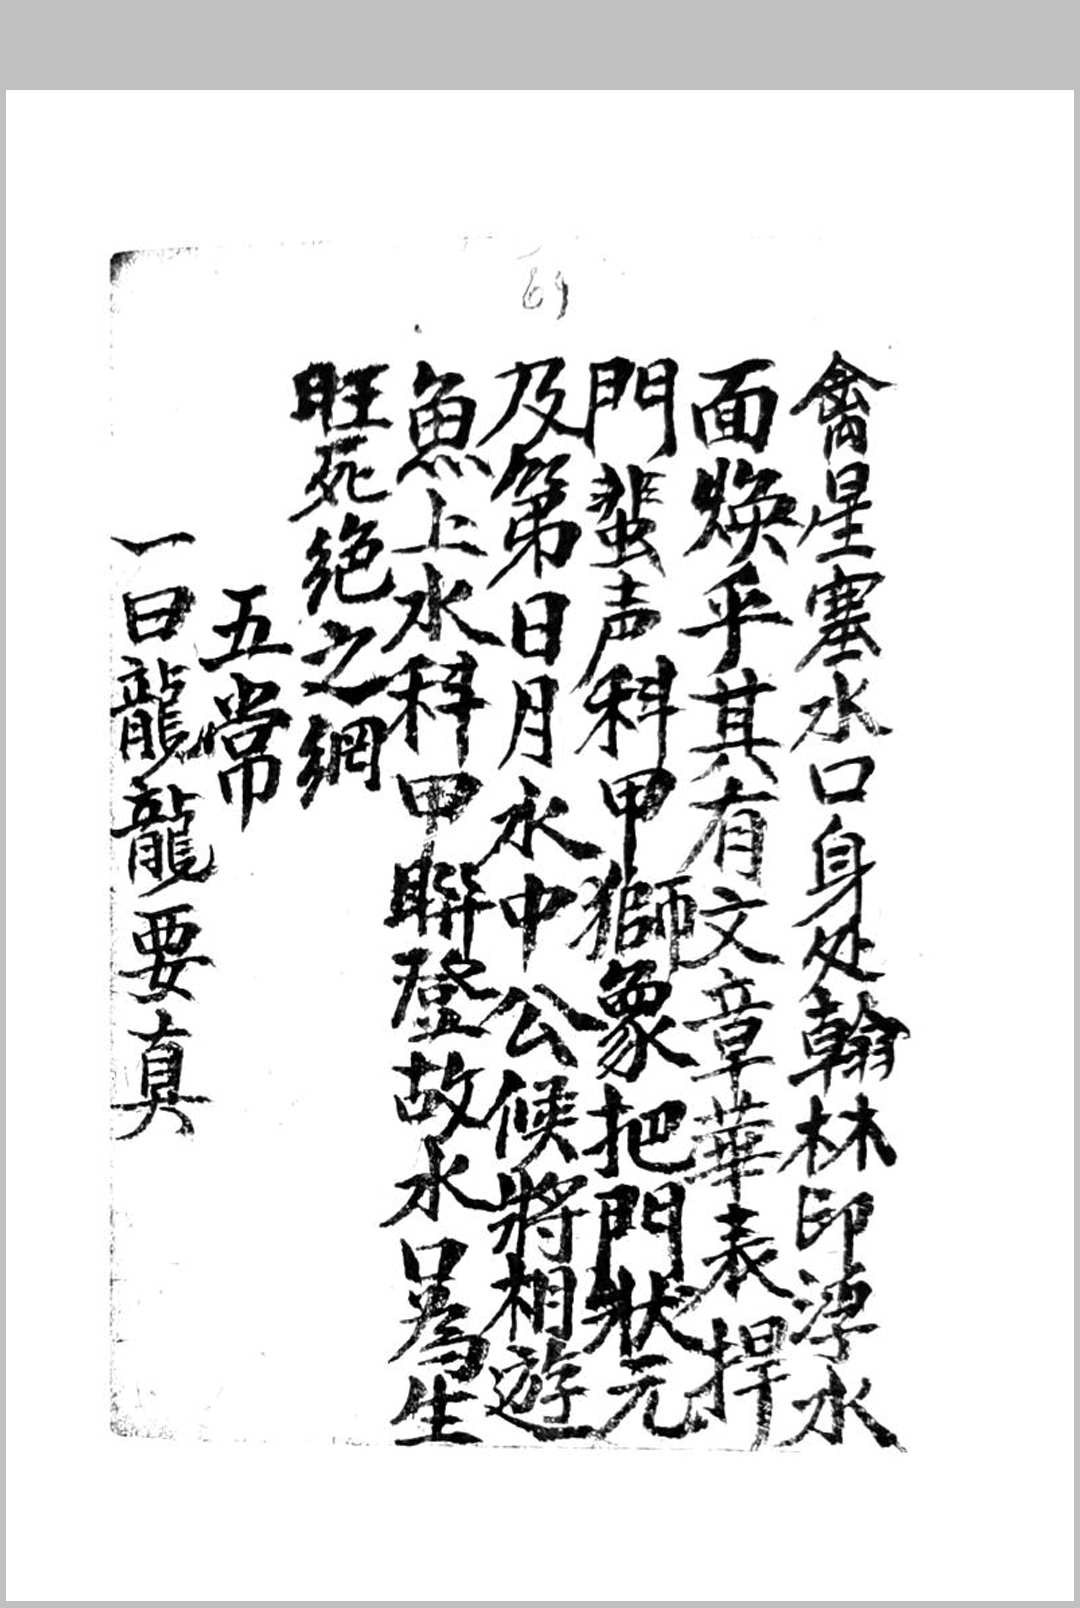 69
禽星塞水口身处翰林印浮水
面焕乎其有文章華表捍
門蜚声科甲獅象把門狀元
及第日月水中公候將相遊
魚上水科甲聯登故水口為生
旺死绝之綱
五常
一曰龍龍要真